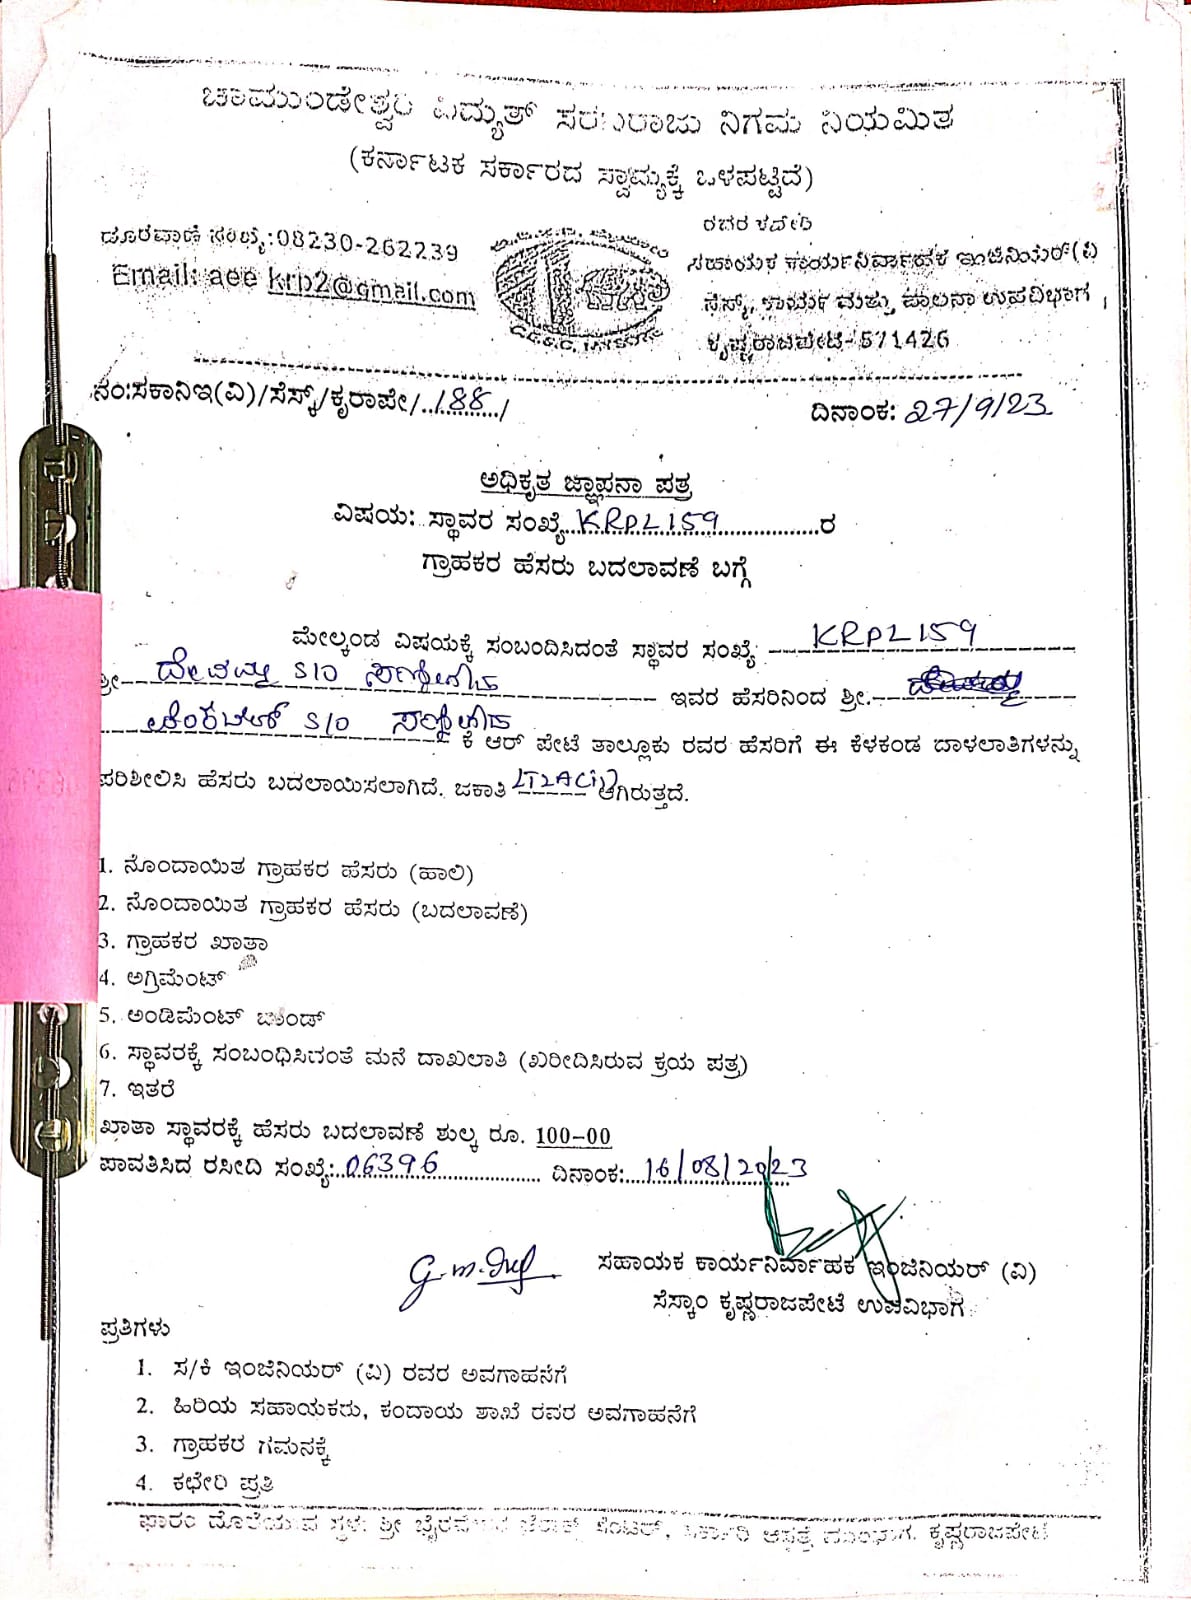 ಚಾಮುಂಡೇಶ್ವರಿ ವಿದ್ಯುತ್ ಸರಬರಾಜು ನಿಗಮ ನಿಯಮಿತ
(ಕರ್ನಾಟಕ ಸರ್ಕಾರದ ಸ್ವಾಮ್ಯಕ್ಕೆ ಒಳಪಟ್ಟಿದೆ)
ದೂರವಾಣಿ ಸಂಖ್ಯೆ:08230-262239
Email: aee krp2@gmail.com
ರವರ ಕಚೇರಿ
ಸಹಾಯಕ ಕಾರ್ಯನಿರ್ವಾಹಕ ಇಂಜಿನಿಯರ್(ವಿ
ಸೆಸ್ಕ್, ಕಾರ್ಯ ಮತ್ತು ಪಾಲನಾ ಉಪವಿಭಾಗ,
ಕೃಷ್ಣರಾಜಪೇಟೆ-571426
ನಂ:ಸಕಾನಿಇ(ವಿ)/ಸೆಸ್ಕ್/ಕೃರಾಪೇ/..188../
ದಿನಾಂಕ: 27/9/23
ಅಧಿಕೃತ ಜ್ಞಾಪನಾ ಪತ್ರ
ವಿಷಯ: ಸ್ಥಾವರ ಸಂಖ್ಯೆ...KRPL159...............ರ
ಗ್ರಾಹಕರ ಹೆಸರು ಬದಲಾವಣೆ ಬಗ್ಗೆ
ಮೇಲ್ಕಂಡ ವಿಷಯಕ್ಕೆ ಸಂಬಂದಿಸಿದಂತೆ ಸ್ಥಾವರ ಸಂಖ್ಯೆ KRPL159
ಶ್ರೀ S/O ಇವರ ಹೆಸರಿನಿಂದ ಶ್ರೀ.
S/O ಕೆ ಆರ್ ಪೇಟೆ ತಾಲ್ಲೂಕು ರವರ ಹೆಸರಿಗೆ ಈ ಕೆಳಕಂಡ ದಾಳಲಾತಿಗಳನ್ನು
ಪರಿಶೀಲಿಸಿ ಹೆಸರು ಬದಲಾಯಿಸಲಾಗಿದೆ. ಜಕಾತಿ LT2A(i) ಆಗಿರುತ್ತದೆ.
1. ನೊಂದಾಯಿತ ಗ್ರಾಹಕರ ಹೆಸರು (ಹಾಲಿ)
2. ನೊಂದಾಯಿತ ಗ್ರಾಹಕರ ಹೆಸರು (ಬದಲಾವಣೆ)
3. ಗ್ರಾಹಕರ ಖಾತಾ
4. ಅಗ್ರಿಮೆಂಟ್
5. ಅಂಡಿಮೆಂಟ್ ಬಾಂಡ್
6. ಸ್ಥಾವರಕ್ಕೆ ಸಂಬಂಧಿಸಿದಂತೆ ಮನೆ ದಾಖಲಾತಿ (ಖರೀದಿಸಿರುವ ಕ್ರಯ ಪತ್ರ)
7. ಇತರೆ
ಖಾತಾ ಸ್ಥಾವರಕ್ಕೆ ಹೆಸರು ಬದಲಾವಣೆ ಶುಲ್ಕ ರೂ. 100-00
ಪಾವತಿಸಿದ ರಸೀದಿ ಸಂಖ್ಯೆ:.06396.................. ದಿನಾಂಕ:...16/08/2023
ಸಹಾಯಕ ಕಾರ್ಯನಿರ್ವಾಹಕ ಇಂಜಿನಿಯರ್ (ವಿ)
ಸೆಸ್ಕಾಂ ಕೃಷ್ಣರಾಜಪೇಟೆ ಉಪವಿಭಾಗ
ಪ್ರತಿಗಳು
1. ಸ/ಕಿ ಇಂಜಿನಿಯರ್ (ವಿ) ರವರ ಅವಗಾಹನೆಗೆ
2. ಹಿರಿಯ ಸಹಾಯಕರು, ಕಂದಾಯ ಶಾಖೆ ರವರ ಅವಗಾಹನೆಗೆ
3. ಗ್ರಾಹಕರ ಗಮನಕ್ಕೆ
4. ಕಛೇರಿ ಪ್ರತಿ
ಫಾರಂ ದೊರೆಯುವ ಸ್ಥಳ ಶ್ರೀ ಕೃಷ್ಣರಾಜಪೇಟೆ